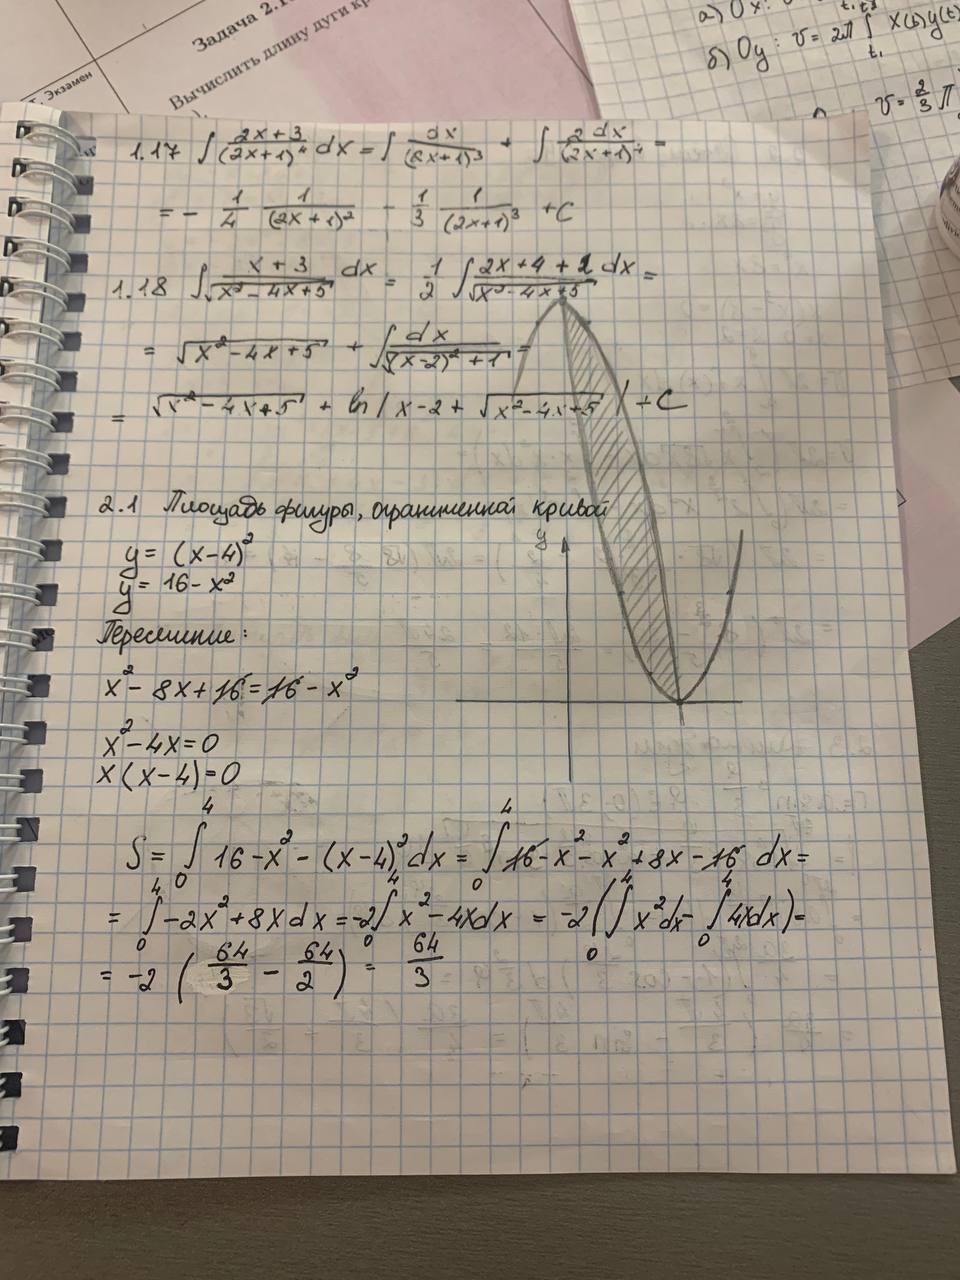 Задача 2.1
Вычислить длину дуги кр
Экзамен
а) Ox:
б) Oy: v = 2π ∫ x(t) y(t)
t₁
v = 2/3 π
1.17 ∫ (2x+3)/(2x+1)⁴ dx = ∫ dx/(2x+1)³ + ∫ 2dx/(2x+1)⁴ =
= - 1/4 1/(2x+1)² - 1/3 1/(2x+1)³ + C
1.18 ∫ (x+3)/√(x²-4x+5) dx = 1/2 ∫ (2x+4+2)/√(x²-4x+5) dx =
= √(x²-4x+5) + ∫ dx/√((x-2)²+1) =
= √(x²-4x+5) + ln|x-2+√(x²-4x+5)| + C
2.1 Площадь фигуры, ограниченной кривой
y = (x-4)²
y = 16-x²
y
Пересечение:
x²-8x+16=16-x²
x²-4x=0
x(x-4)=0
S = ∫₀⁴ 16-x²-(x-4)² dx = ∫₀⁴ 16-x²-x²+8x-16 dx =
= ∫₀⁴ -2x²+8x dx = -2∫₀⁴ x²-4x dx = -2(∫₀⁴ x²dx - ∫₀⁴ 4xdx) =
= -2 (64/3 - 64/2) = 64/3